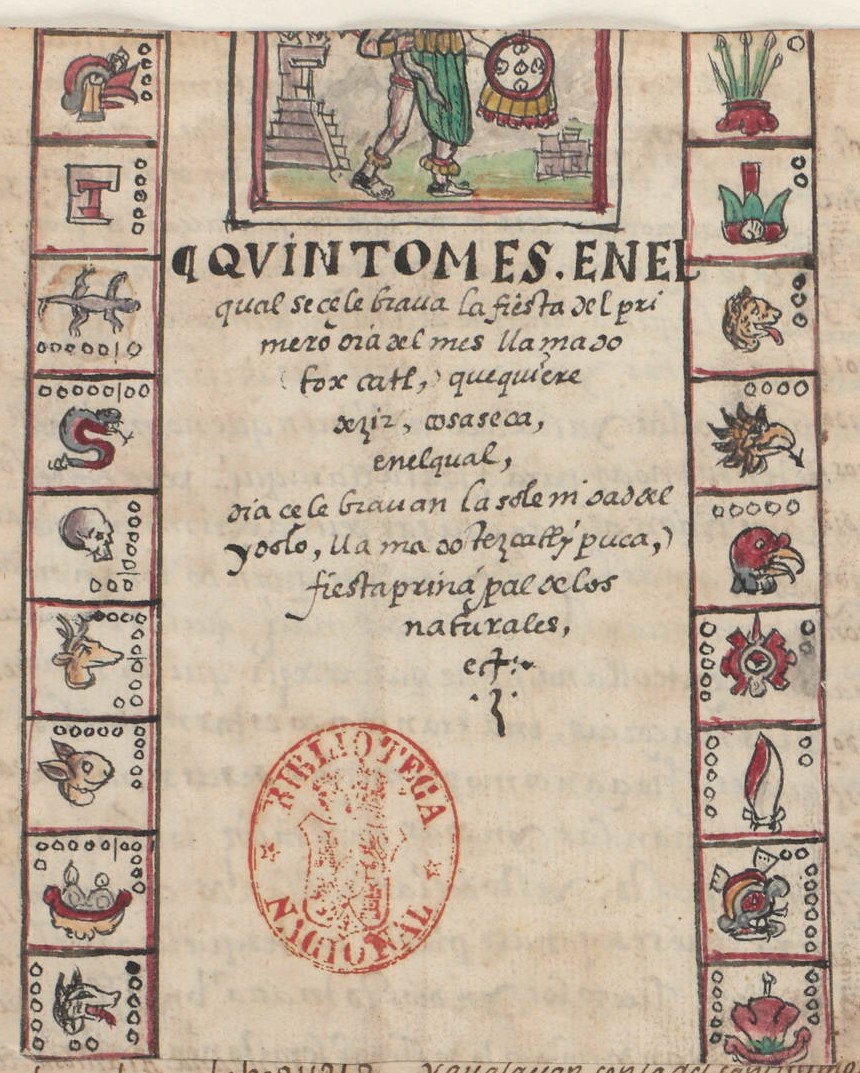 ¶QVINTOMES. ENEL
qual se çele braua la fiesta del pri
mero dia del mes llamado
(tox catl,) que quiere
dezir, cosa seca,
enelqual,
dia çele brauan la sole ni dad del
ydolo, llamado tezcatly puca,)
fiesta prinçipal de los
naturales,
ect.
BIBLIOTECA
NACIONAL